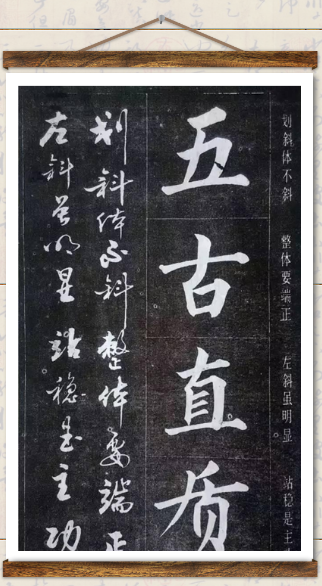 划斜体不斜 整体要端正 左斜虽明显 站稳是主
五古直质
划斜体不斜整体要端正
左斜虽明显站稳是主功